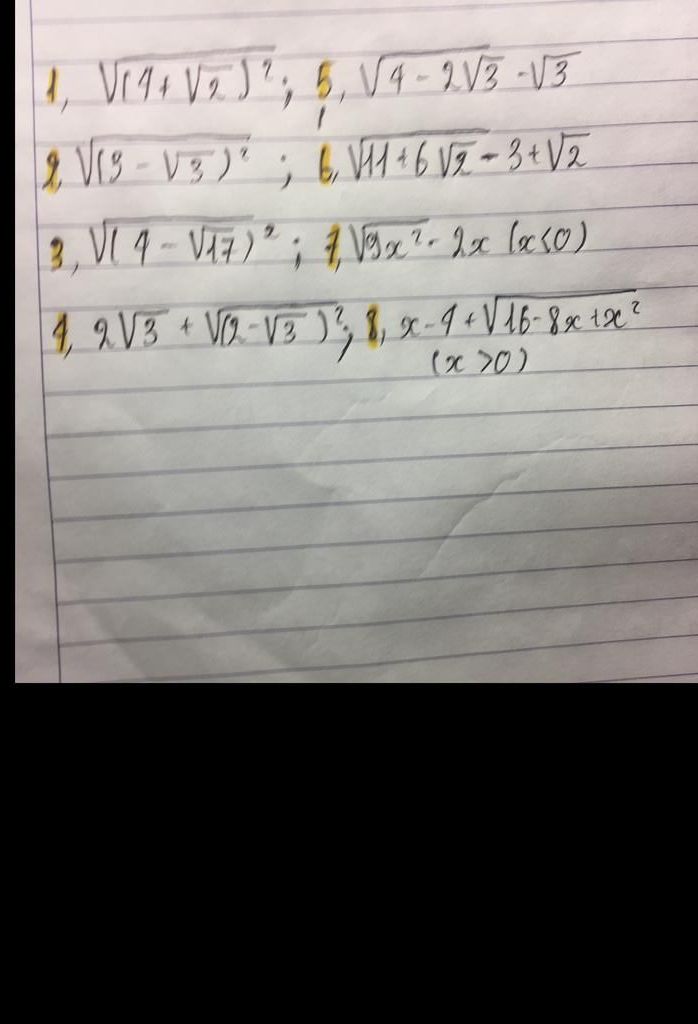 1, √(4+√2)²; 5, √4-2√3-√3
2, √(3-√3)²; 6, √11+6√2-3+√2
3, √(4-√17)²; 7, √9x²-2x (x<0)
4, 2√3+√(2-√3)²; 8, x-4+√16-8x+x²
(x>0)